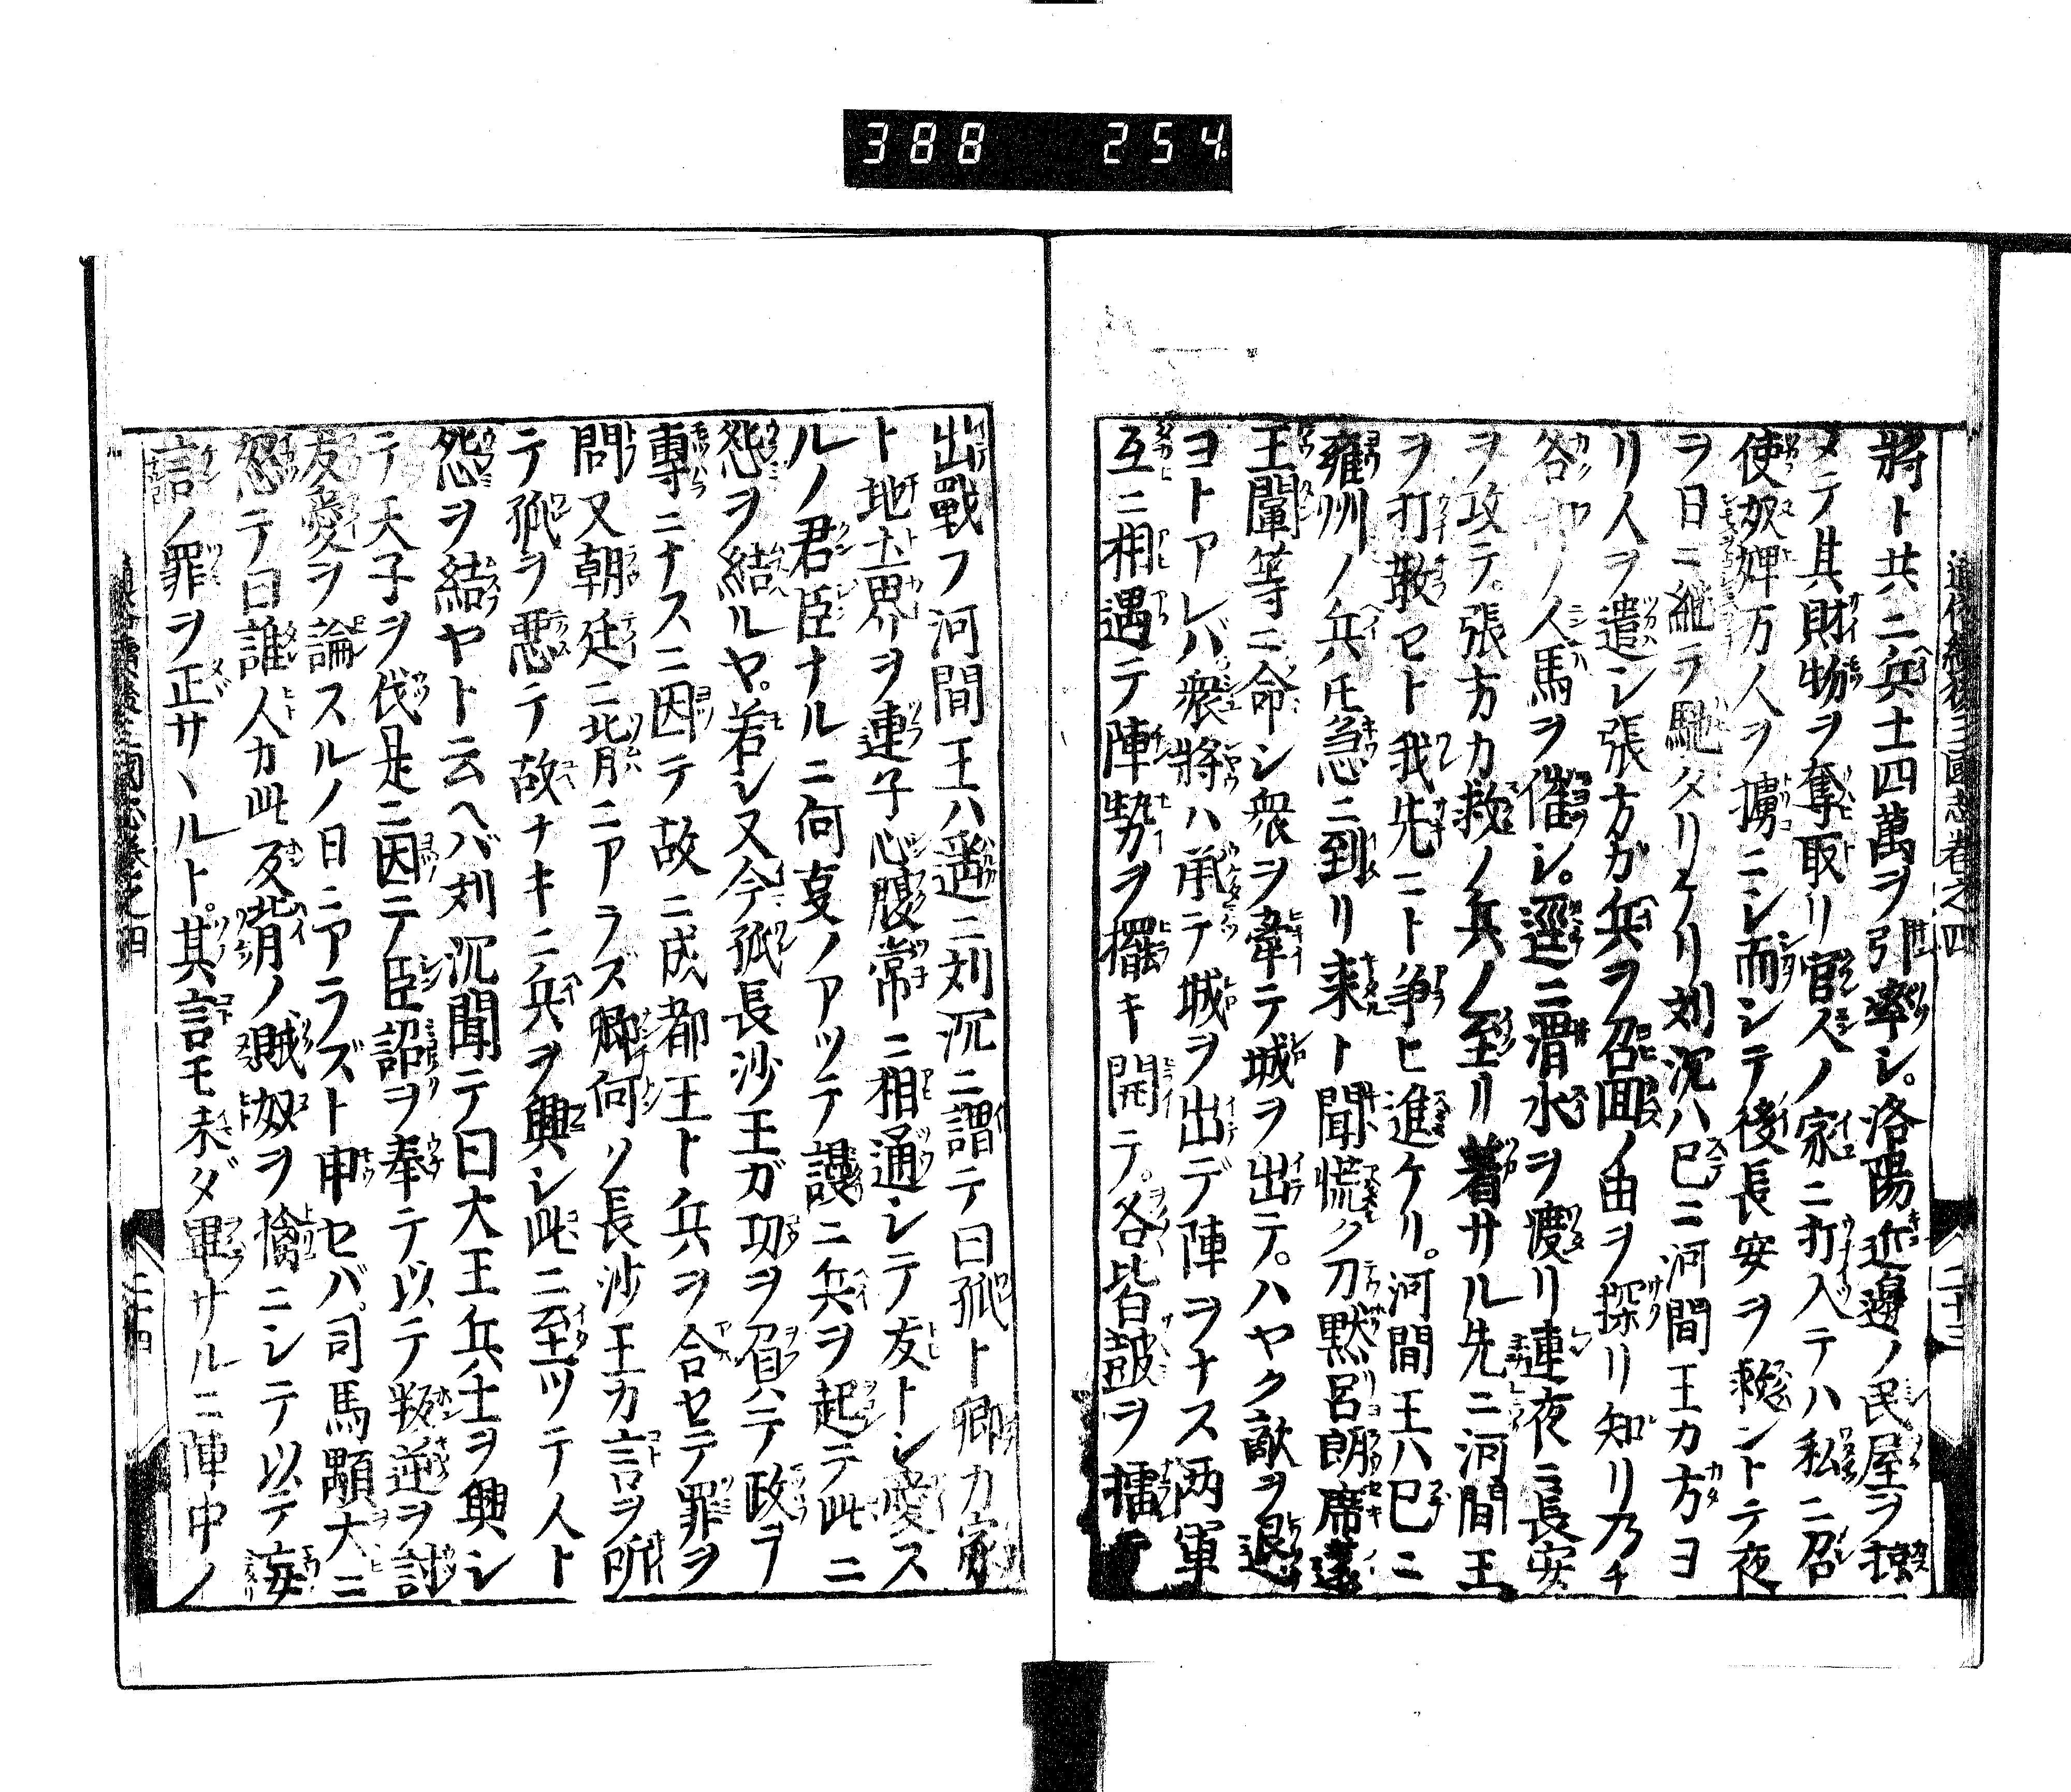 388 254
將ト共ニ兵士四萬ヲ引率シ。洛陽近邊ノ民屋ヲ掠
メテ其財物ヲ奪取リ官人ノ家ニ打入テハ私ニ召
使奴婢万人ヲ擄ニシ而シテ後長安ヲ救ントテ夜
ヲ日ニ継テ馳タリケリ刘沉ハ已ニ河間王カ方ヨ
リ人ヲ遣シ張方ガ兵ヲ召回ノ由ヲ探リ知リ乃チ
各郡ノ人馬ヲ催シ。逕ニ渭水ヲ渡リ連夜ニ長安
ヲ攻テ。張方カ救ノ兵ノ至リ着サル先ニ河間王
ヲ打散セト我先ニト争ヒ進ケリ。河間王ハ已ニ
雍州ノ兵氏急ニ到リ来ト聞慌ク刀黙呂朗席薳
王闡等ニ命シ衆ヲ韋テ城ヲ出テ。ハヤク敵ヲ退
ヨトアレバ衆將ハ承テ城ヲ出デ陣ヲナス两軍
互ニ相遇テ陣勢ヲ擺キ開テ。各皆鼓ヲ擂テ
出戰フ河間王ハ遥ニ刘沉ニ謂テ曰孤ト卿カ家
ト地土界ヲ連子心腹常ニ相通シテ友トシ愛ス
ルノ君臣ナルニ何叓ノアツテ謾ニ兵ヲ起テ此ニ
怨ヲ結ルヤ。若シ又今孤長沙王ガ功ヲ負ハテ政ヲ
專ニナスニ因テ故ニ成都王ト兵ヲ合セテ罪ヲ
問又朝廷ニ背ニアラズ卿何ソ長沙王カ言ヲ所
テ孤ヲ悪テ故ナキニ兵ヲ興シ此ニ至ツテ人ト
怨ヲ結ヤト云ヘバ刘沉聞テ曰大王兵士ヲ興シ
テ天子ヲ伐是ニ因テ臣詔ヲ奉テ以テ叛逆ヲ討
友愛ヲ論スルノ日ニアラズト申セバ。司馬顒大ニ
怒テ曰誰人カ此反背ノ賊奴ヲ擒ニシテ以テ妄
言ノ罪ヲ正サヽルト。其言モ未ダ畢サルニ陣中ノ